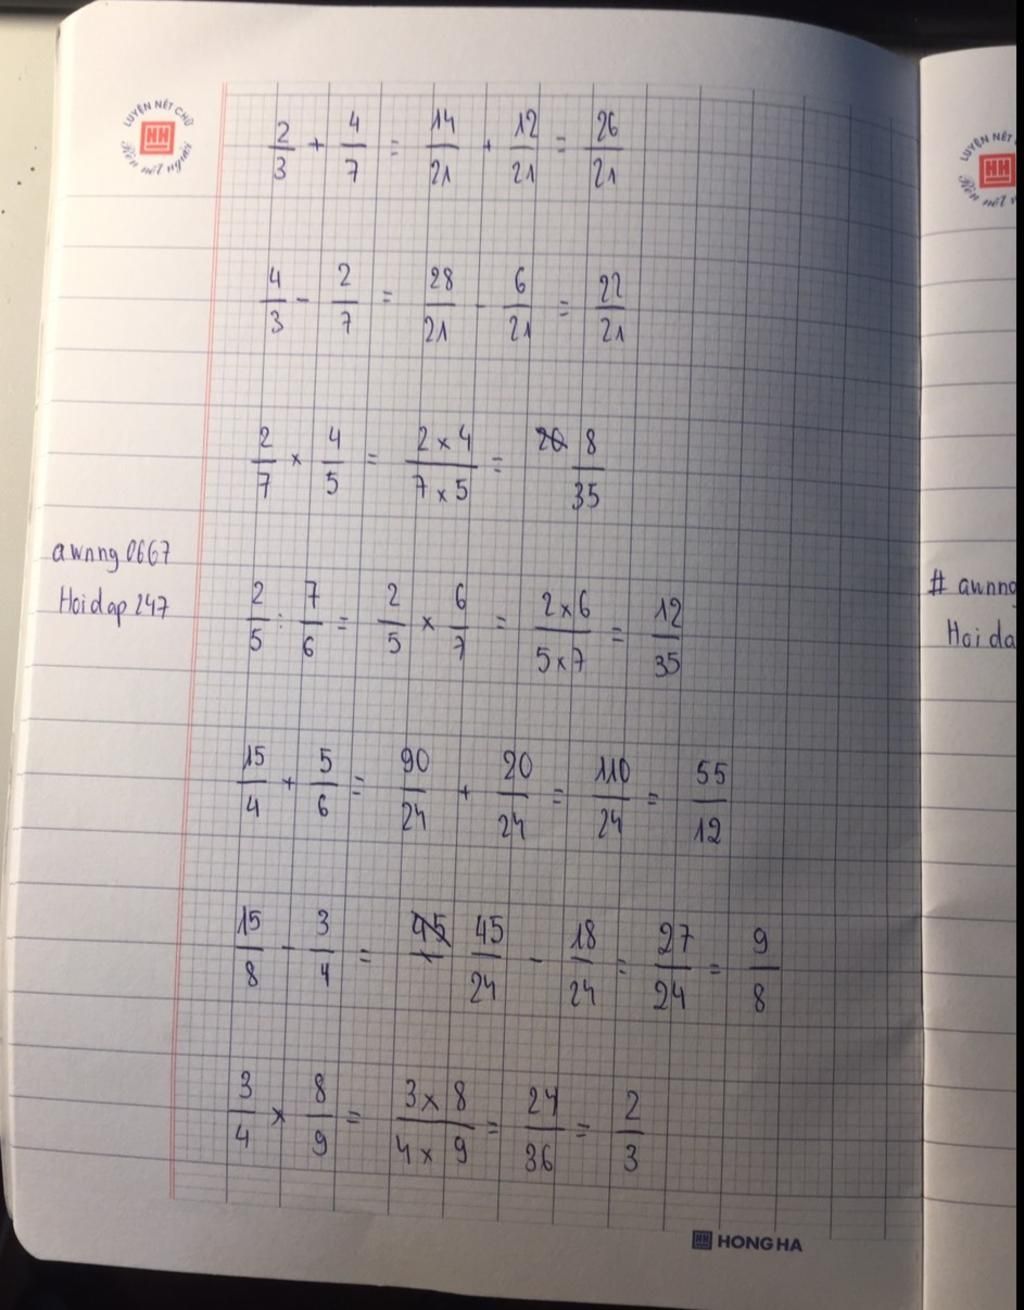 LUYỆN NÉT CHỮ
HH
Rèn nết người
2/3 + 4/7 = 14/21 + 12/21 = 26/21
4/3 - 2/7 = 28/21 - 6/21 = 22/21
2/7 × 4/5 = 2 × 4/7 × 5 = 8/35
awnng0667
Hoidap247
2/5 : 7/6 = 2/5 × 6/7 = 2×6/5×7 = 12/35
15/4 + 5/6 = 90/24 + 20/24 = 110/24 = 55/12
15/8 - 3/4 = 45/24 - 18/24 = 27/24 = 9/8
3/4 × 8/9 = 3 × 8/4 × 9 = 24/36 = 2/3
HH HONG HA
LUYỆN NÉT
HH
Rèn nết
# awnng
Hoida